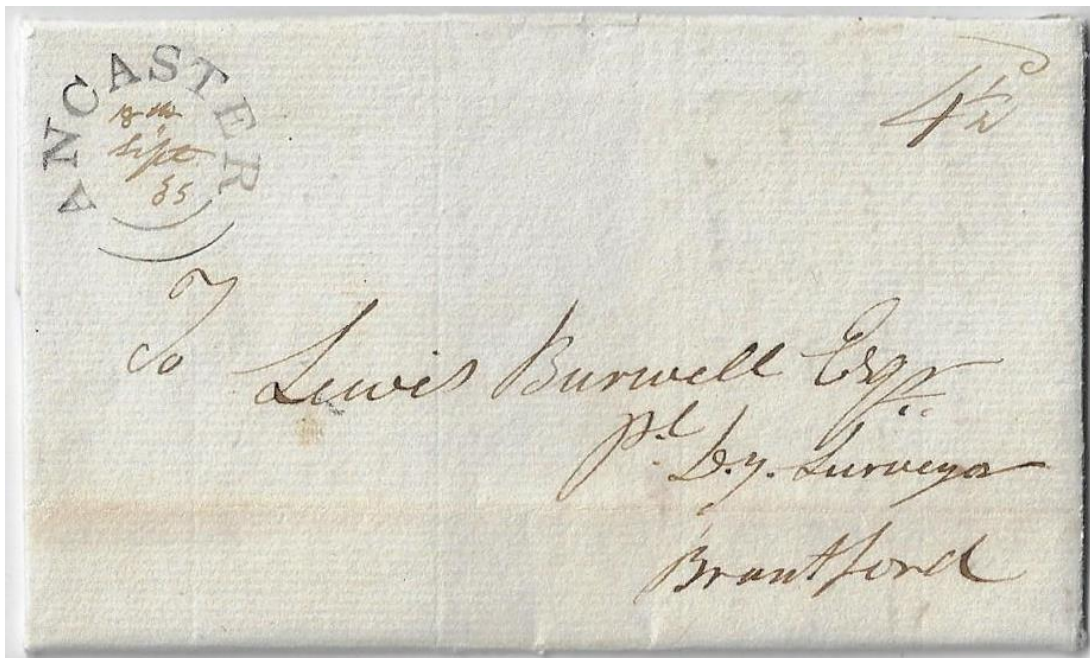 ANCASTER
18th
Sept
35
4½
To
Lewis Burwell Esqr
Pl. Dy. Surveyor
Brantford